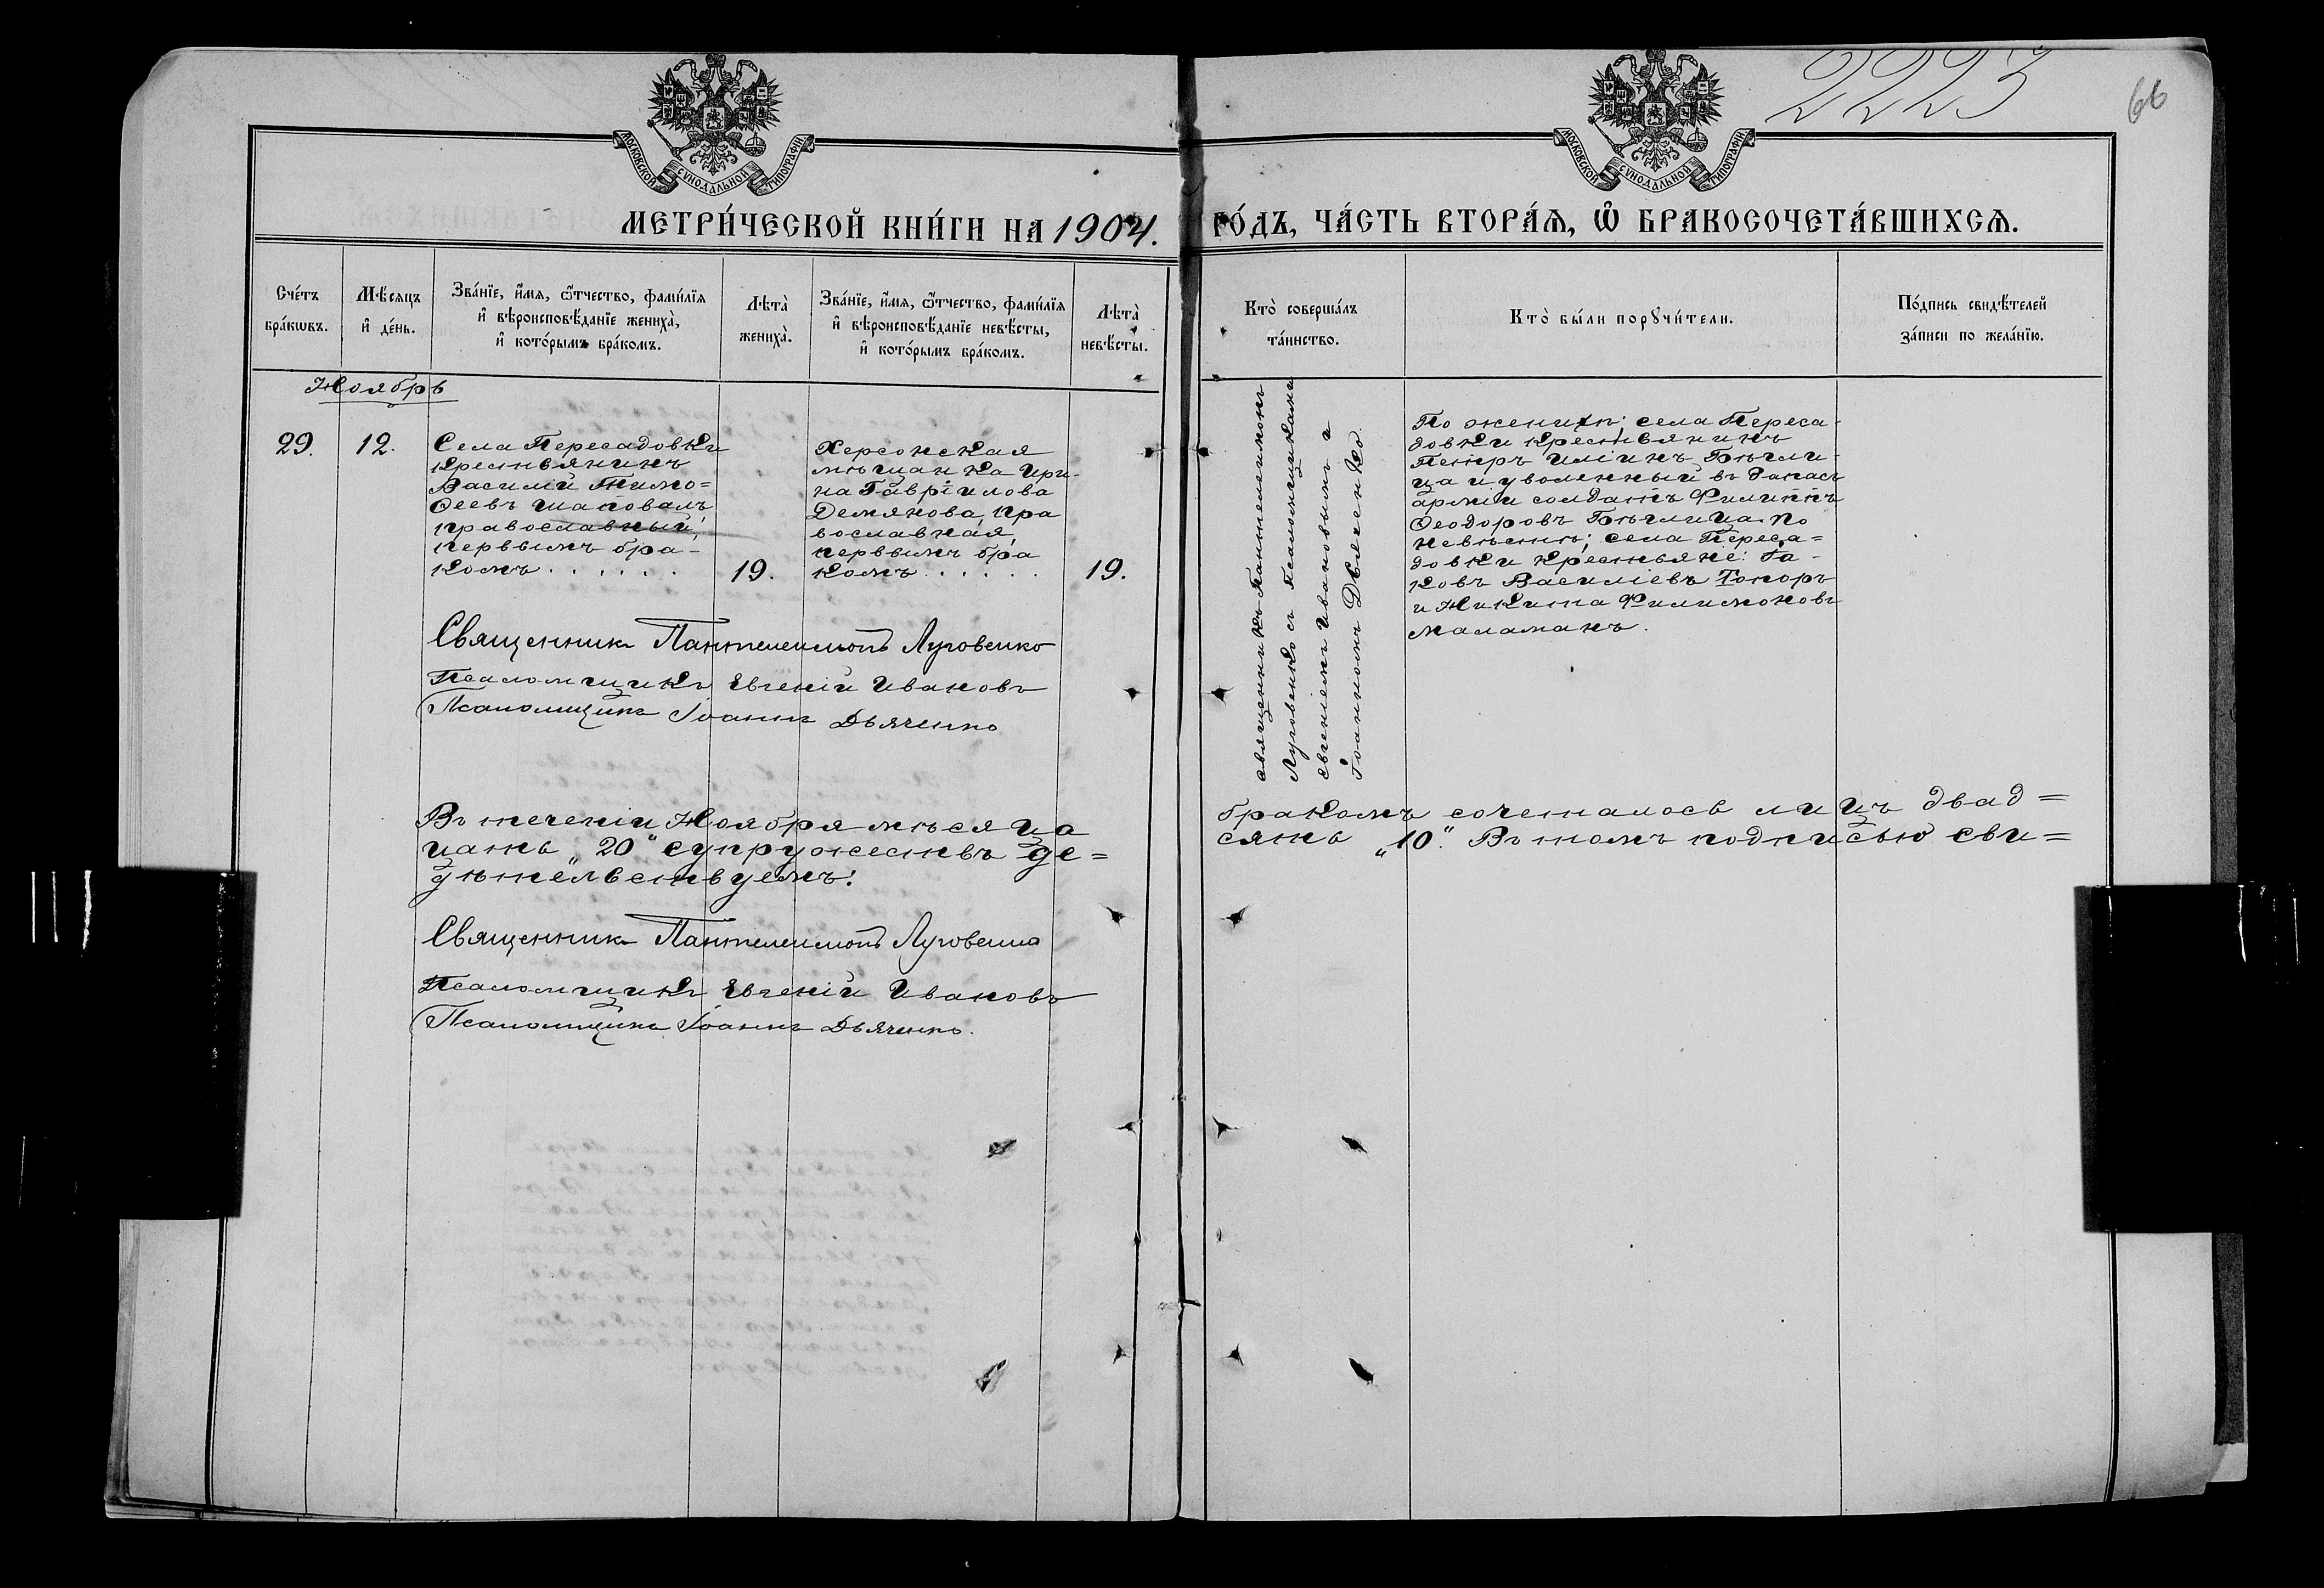 2223
66
МОСКОВСКОЙ СѴНОДАЛЬНОЙ ТИПОГРАФІИ
МОСКОВСКОЙ СѴНОДАЛЬНОЙ ТИПОГРАФІИ
МЕТРИ́ЧЕСКОЙ КНИ́ГИ НА 1904.
ГО́ДЪ, ЧА́СТЬ ВТОРА́Ѧ, Ѡ҆ БРАКОСОЧЕТА́ВШИХСѦ.
Сче́тъ
бра́кѡвъ.
Мѣ́сяцъ
и҆ де́нь.
Зва́нїе, и҆́мя, ѻ҆́тчество, фами́лїя
и҆ вѣроисповѣ́данїе жениха̀,
и҆ кото́рымъ бра́комъ.
Лѣта̀
жениха̀.
Зва́нїе, и҆́мя, ѻ҆́тчество, фами́лїя
и҆ вѣроисповѣ́данїе невѣ́сты,
и҆ кото́рымъ бра́комъ.
Лѣта̀
невѣ́сты.
Кто̀ соверша́лъ
та́инство.
Кто̀ бы́ли порꙋчи́тели.
По́дпись свидѣ́телей
за́писи по жела́нїю.
Ноябрь
29.
12.
Села Пересадовки
крестьянинъ
Василій Тимо=
ѳеевъ Шаповалъ
православный,
первымъ бра-
комъ . . . . . .
19.
Херсонская
мѣщанка Ири-
на Гавріилова
Демянова, пра
вославная,
первымъ бра
комъ . . . . .
19.
Священникъ Пантелеимонъ
Луговенко съ Псаломщиками
Евгеніемъ Ивановымъ и
Іоанномъ Дьяченко.
По женихѣ; села Переса-
довки крестьянинъ
Петръ Иліинъ Бѣгли-
ца и уволенный въ запасъ
арміи солдатъ Филиппъ
Ѳеодоровъ Бѣглица. По
невѣстѣ; села Переса=
довки крестьяне: Іа-
ковъ Василіевъ Топоръ
и Никита Филимоновъ
Маламанъ.
Священникъ Пантелеимонъ Луговенко
Псаломщикъ Евгеній Ивановъ
Псаломщикъ Іоаннъ Дьяченко
Въ теченіи Ноября мѣсяца
бракомъ сочеталось лицъ двад=
цать „20“ супружествъ де=
сять „10“. Въ томъ подписью сви=
дѣтельствуемъ:
Священникъ Пантелеимонъ Луговенко
Псаломщикъ Евгеній Ивановъ
Псаломщикъ Іоаннъ Дьяченко.